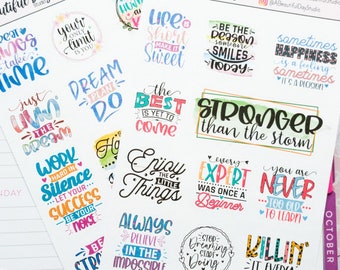 @ABeautifulDayStudio
things
take
TIME
your
only
limit is
you
LIFE
is
Short
make it
Sweet
BE THE
REASON
someone
SMILES
TODAY
sometimes
HAPPINESS
is a feeling
sometimes
IT'S A DECISION
DREAM
DO
just
the
DREAM
the
BEST
IS YET TO
COME
STRONGER
than the storm
WORK
HARD IN
Silence
LET YOUR
SUCCESS
BE YOUR
Enjoy
THE LITTLE
Things
every
EXPERT
WAS ONCE A
Beginner
YOU ARE
NEVER
TOO OLD
TO LEARN
ALWAYS
BELIEVE
IN THE
IMPOSSIBLE
STOP
Dreaming
START
Doing
KILLIN'
OCTOBER